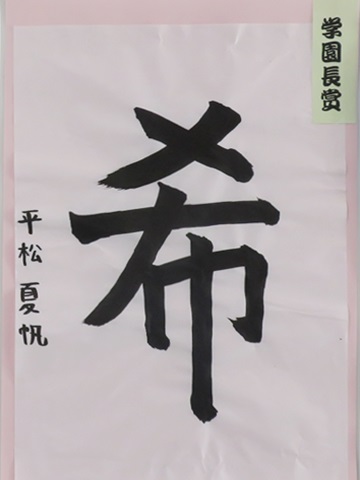 学園長賞
希
平松夏帆